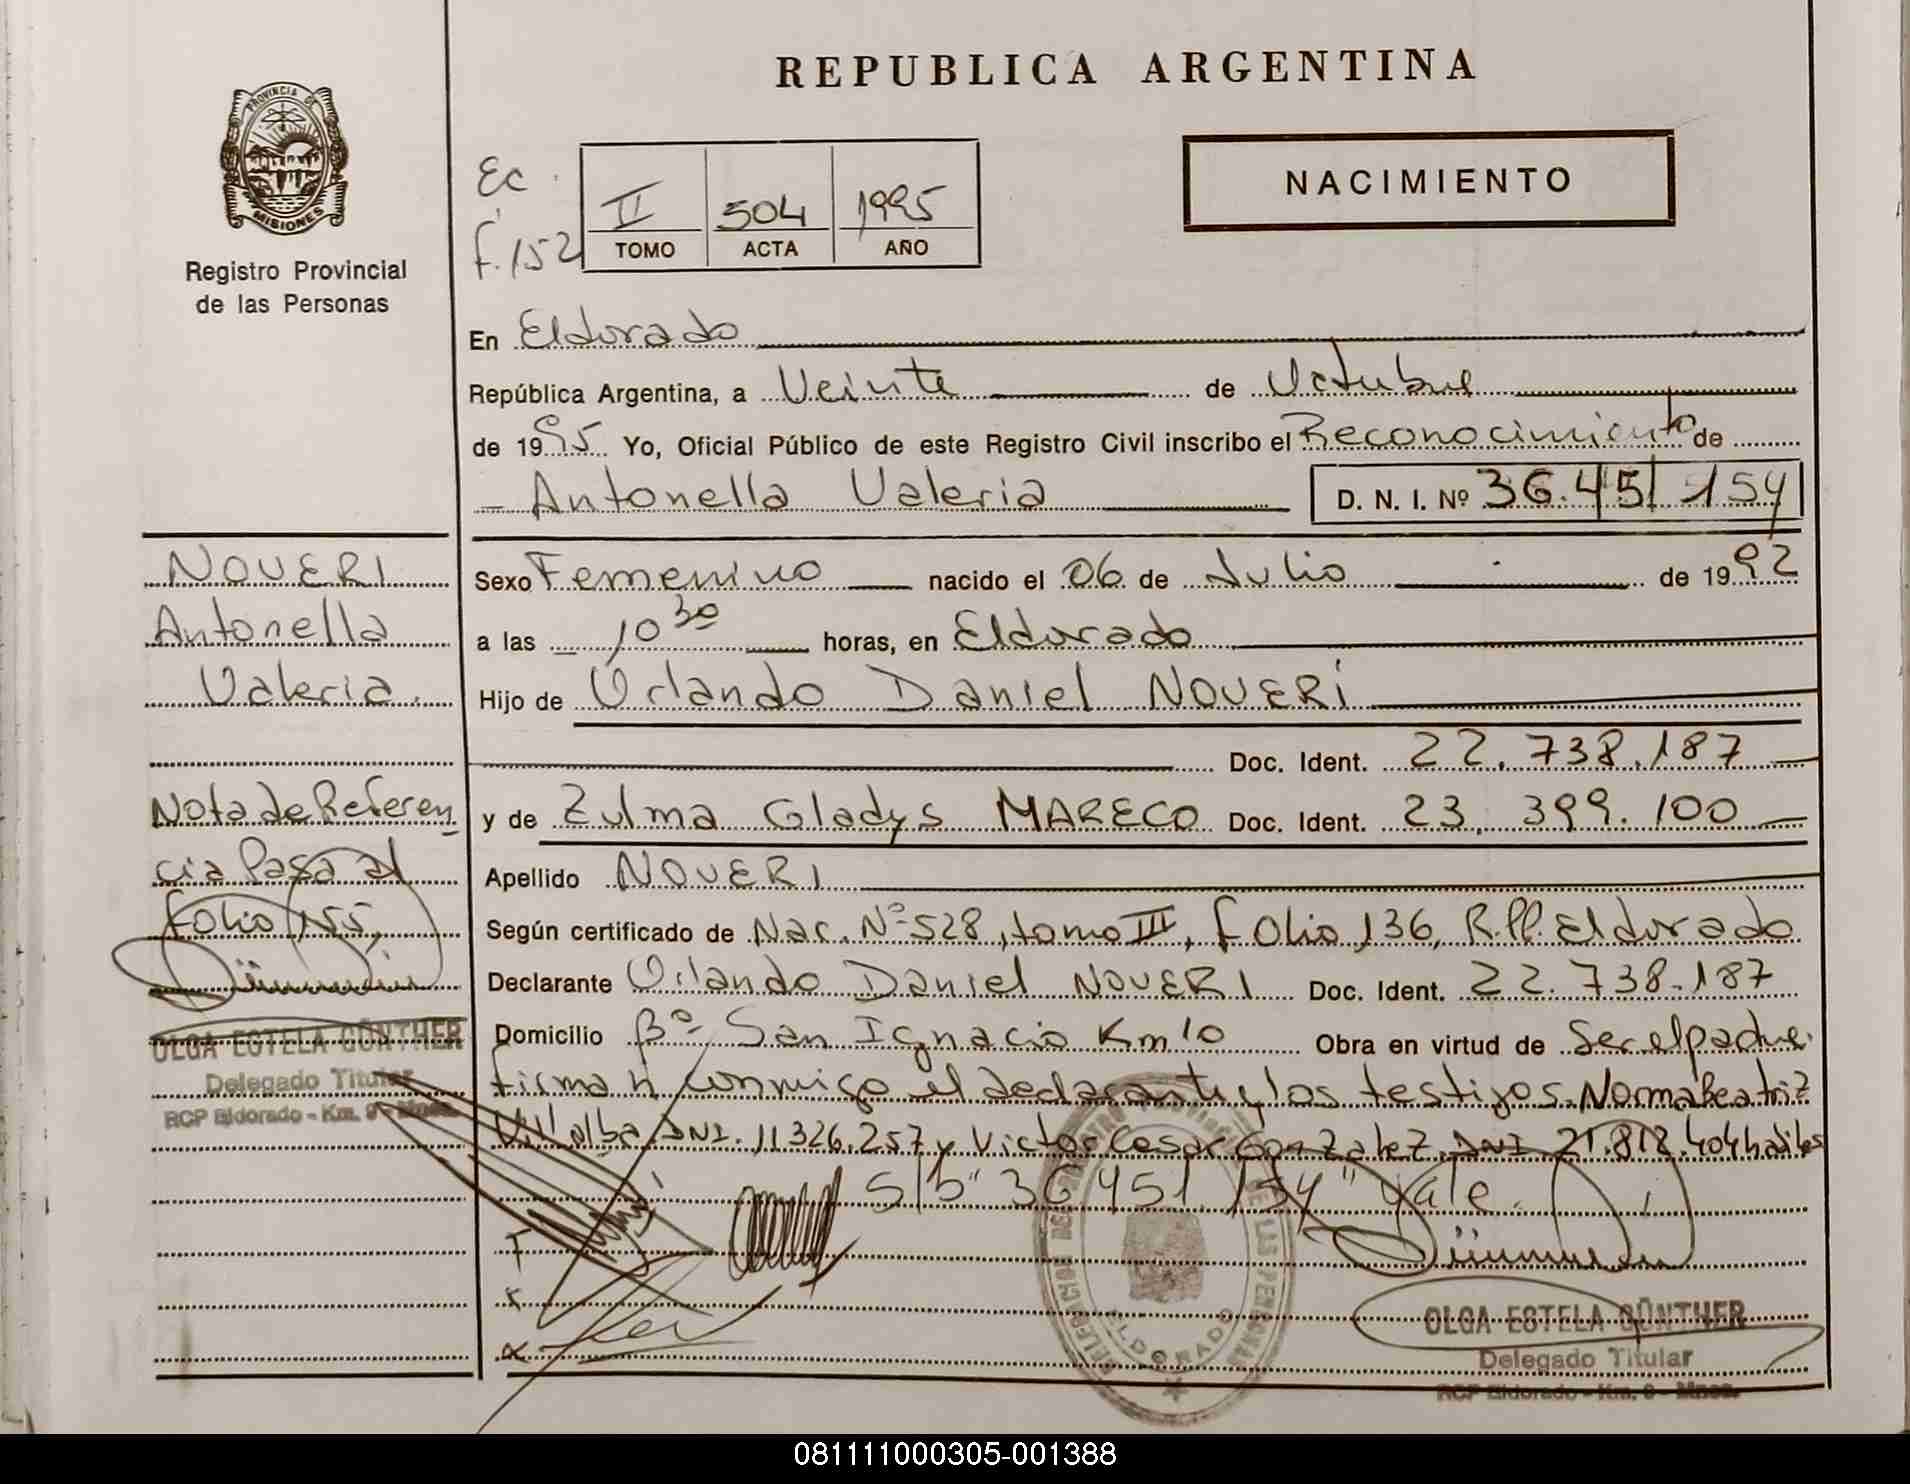 REPUBLICA ARGENTINA
PROVINCIA DE
MISIONES
Registro Provincial
de las Personas
Ec.
f. 152
II 504 1995
TOMO ACTA AÑO
NACIMIENTO
En Eldorado
República Argentina, a Veinte de Octubre
de 1995 Yo, Oficial Público de este Registro Civil inscribo el Reconocimiento de
Antonella Valeria D. N. I. Nº 36.451.154
Sexo Femenino nacido el 06 de Julio de 1992
a las 10 30 horas, en Eldorado
Hijo de Orlando Daniel NOVERI
Doc. Ident. 22.738.187
y de Zulma Gladys MARECO Doc. Ident. 23.399.100
Apellido NOVERI
Según certificado de Nac. Nº 528, tomo III, folio 136, R.PP. Eldorado
Declarante Orlando Daniel NOVERI Doc. Ident. 22.738.187
Domicilio Bº San Ignacio Km 10 Obra en virtud de Ser el padre.
firman conmigo el declarante y los testigos Norma Beatriz
Villalba DNI. 11.326.257 y Victor Cesar Gonzalez, DNI 21.818.404 habiles
S/b "36.451.154" Vale.
OLGA ESTELA GÜNTHER
Delegado Titular
RCP Eldorado - Km. 9 - Mnes.
ELDORADO
NOVERI
Antonella
Valeria.
Nota de Referen
cia Pasa al
folio 155,
OLGA ESTELA GÜNTHER
Delegado Titular
RCP Eldorado - Km. 9 - Mnes.
081111000305-001388